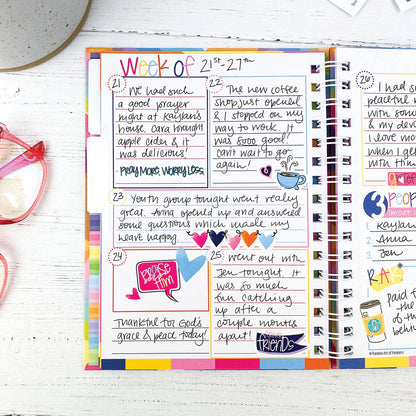 Week of 21st-27th
21
We had such
a good prayer
night at Kaylan's
house. Cara brought
apple cider & it
was delicious!
PRAY MORE, WORRY LESS
22
The new coffee
shop just opened
& I stopped on my
way to work. It
was sooo good
can't wait to go
again!
23
Youth group tonight went really
great. Anna opened up and answered
some questions which made my
heart happy.
24
praise Him
Thankful for God's
grace & peace today!
25
went out with
Jen tonight. It
was so much
fun catching
up after a
couple months
apart!
friends
26
I had s
peaceful m
with som
& my dev
I love mor
when I get
with Him
3
PEOPLE
Kaylan
Anna
Jen
par
of th
beh